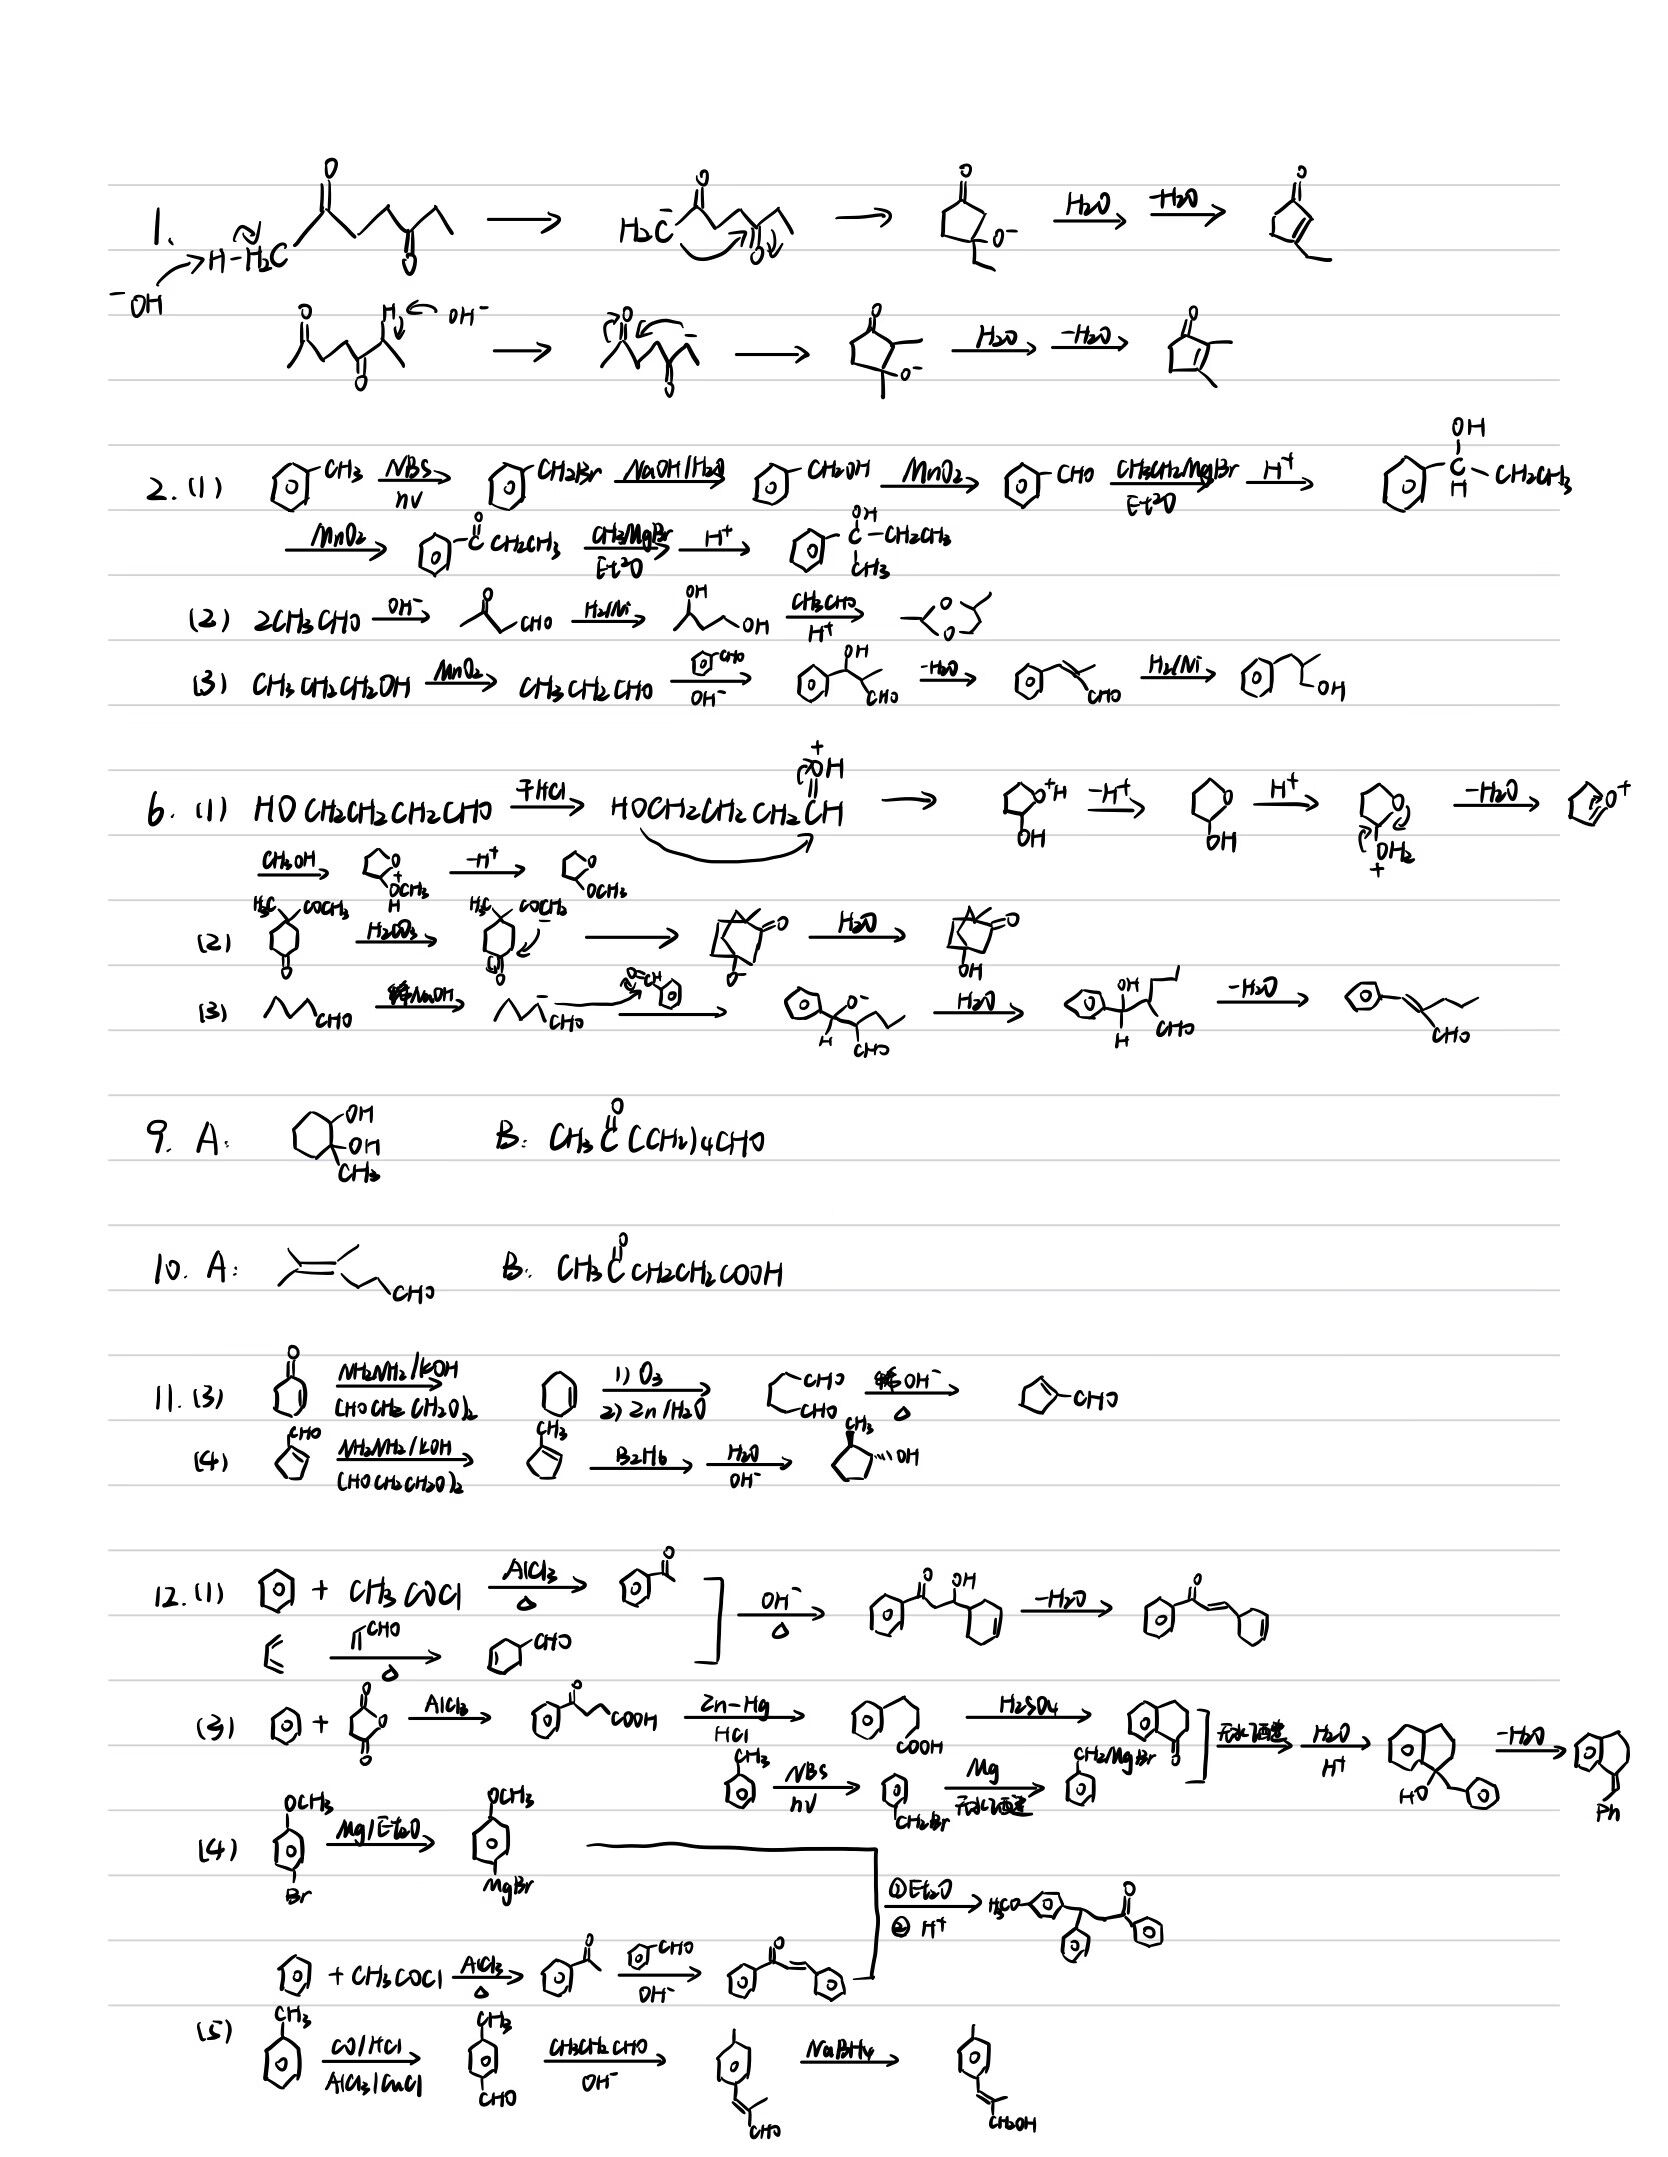 1. H-H₂C O O → H₂C⁻ O O → O O⁻ H₂O -H₂O O
⁻OH
O H OH⁻ O → O ⁻ O → O O⁻ H₂O -H₂O O
2. (1) CH₃ NBS hν CH₂Br NaOH/H₂O CH₂OH MnO₂ CHO CH₃CH₂MgBr Et₂O H⁺ OH C H CH₂CH₃
MnO₂ O C CH₂CH₃ CH₃MgBr Et₂O H⁺ OH C-CH₂CH₃ CH₃
(2) 2CH₃CHO OH⁻ O CHO H₂/Ni OH OH CH₃CHO H⁺ O O
(3) CH₃CH₂CH₂OH MnO₂ CH₃CH₂CHO CHO OH⁻ OH CHO -H₂O CHO H₂/Ni OH
6. (1) HOCH₂CH₂CH₂CHO 干HCl HOCH₂CH₂CH₂CH ⁺OH → O⁺H OH -H⁺ O OH H⁺ O OH₂ + -H₂O O⁺
CH₃OH O + OCH₃ H -H⁺ O OCH₃
(2) H₃C COCH₃ O H₂CO₃ H₃C COCH₂⁻ O → O O⁻ H₂O O OH
(3) CHO 稀NaOH ⁻ CHO O=CH O⁻ H CHO H₂O OH H CHO -H₂O CHO
9. A: OH OH CH₃ B: CH₃C(CH₂)₄CHO O
10. A: CHO B: CH₃CCH₂CH₂COOH O
11. (3) O NH₂NH₂/KOH (HOCH₂CH₂O)₂ 1) O₃ 2) Zn/H₂O CHO CHO 稀OH⁻ △ CHO
(4) CHO NH₂NH₂/KOH (HOCH₂CH₂O)₂ CH₃ B₂H₆ H₂O OH⁻ CH₃ OH
12. (1) + CH₃COCl AlCl₃ △ O OH⁻ △ O OH -H₂O O
CHO △ CHO
(3) + O O O AlCl₃ O COOH Zn-Hg HCl COOH H₂SO₄ O 无水乙醚 H₂O H⁺ HO -H₂O Ph
CH₃ NBS hν CH₂Br Mg 无水乙醚 CH₂MgBr
(4) OCH₃ Br Mg/Et₂O OCH₃ MgBr ①Et₂O ② H⁺ H₃CO O
+ CH₃COCl AlCl₃ △ O CHO OH⁻ O
(5) CH₃ CO/HCl AlCl₃/CuCl CH₃ CHO CH₃CH₂CHO OH⁻ CHO NaBH₄ CH₂OH